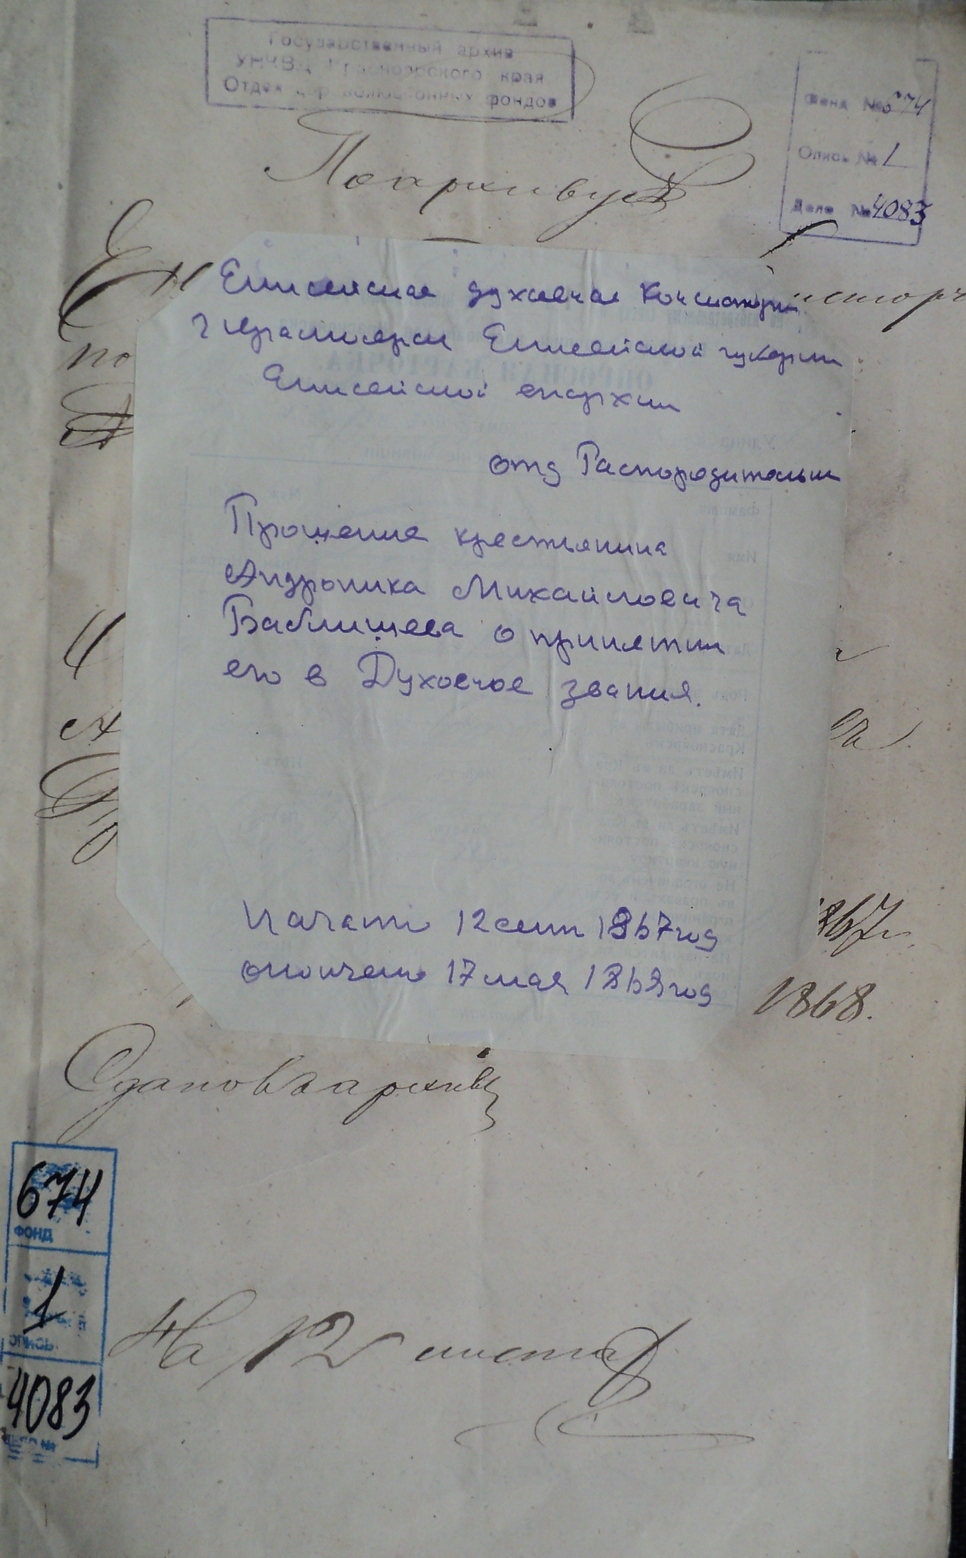 Государственный архив
УНКВД Красноярского края
Отдел дореволюционных фондов
Фонд № 674
Опись № 1
Дело № 4083
По архиву
Ен
исторі
Енисейская духовная Консистория
г Красноярск Енисейской губернии
по
Енисейской епархии
отд Распорядительн
Прошение крестьянина
Андроника Михайловича
Баблищева о принятии
его в Духовное звания.
Начато 12 сент 1867 год
867
окончено 17 мая 1868 год
1868.
Сдано въ архивъ
674
ФОНД
1
ОПИСЬ
4083
На 12 листахъ